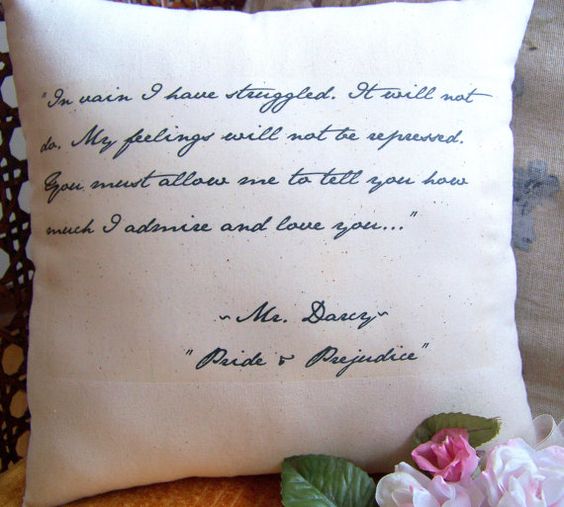 "In vain I have struggled. It will not
do. My feelings will not be repressed.
You must allow me to tell you how
much I admire and love you..."
~Mr. Darcy~
"Pride & Prejudice"